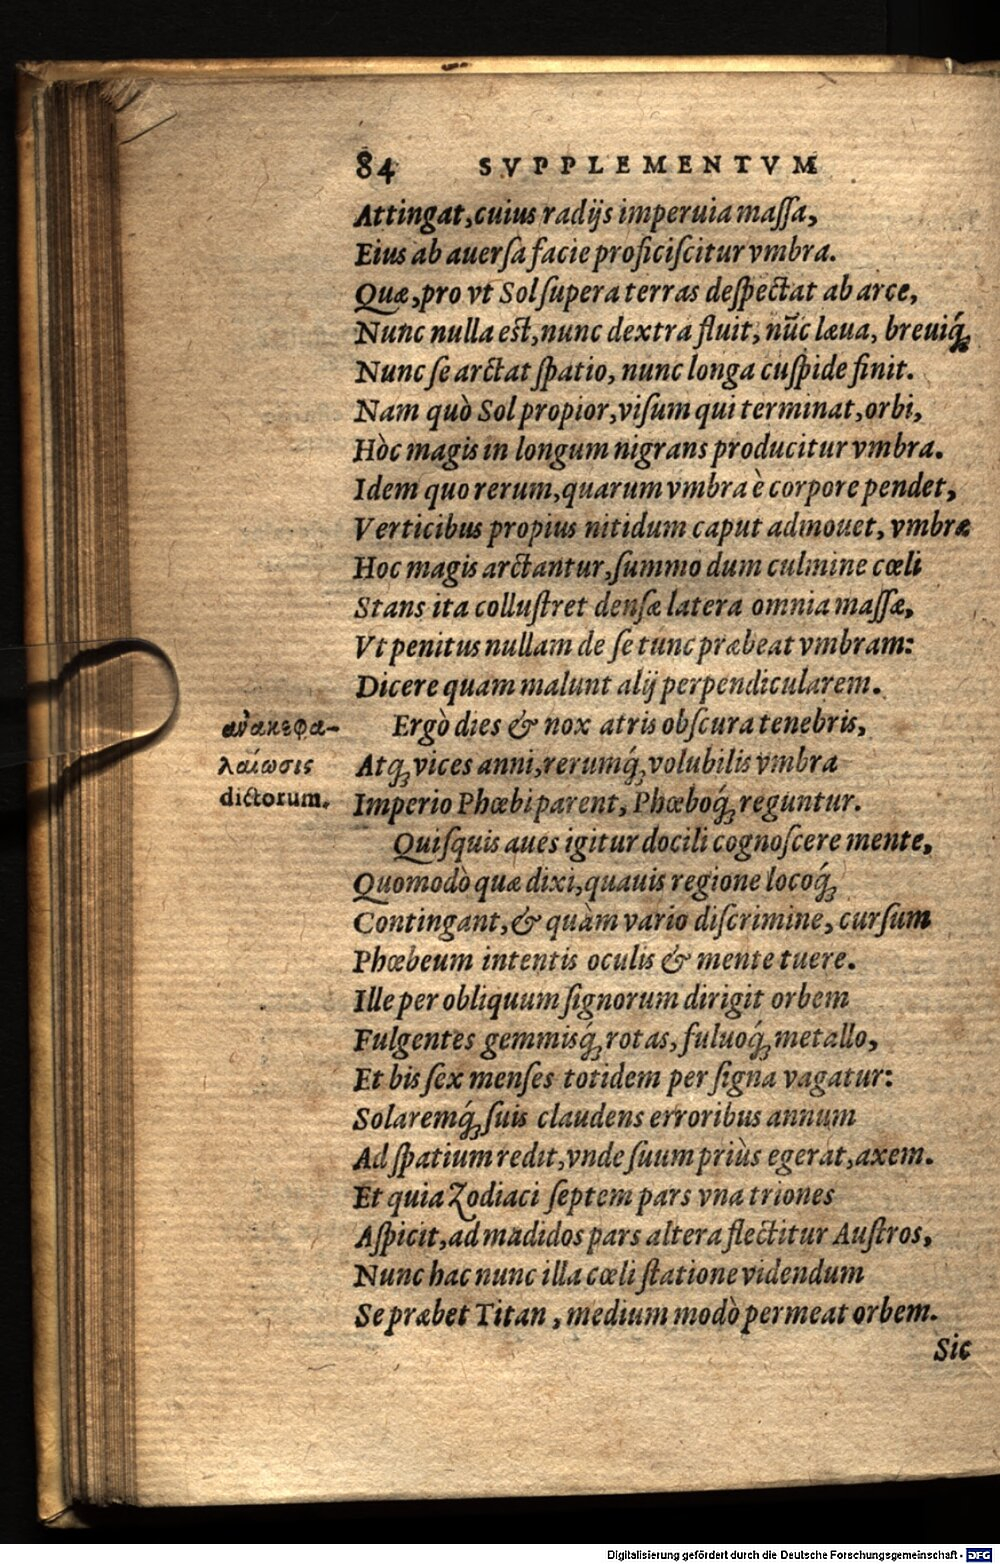 84 SVPPLEMENTVM
Attingat, cuius radijs imperuia maſſa,
Eius ab auerſa facie proficiſcitur vmbra.
Quæ, pro vt Sol ſupera terras deſpectat ab arce,
Nunc nulla eſt, nunc dextra fluit, nūc læua, breuiq́;
Nunc ſe arctat ſpatio, nunc longa cuſpide finit.
Nam quò Sol propior, viſum qui terminat, orbi,
Hòc magis in longum nigrans producitur vmbra.
Idem quo rerum, quarum vmbra è corpore pendet,
Verticibus propius nitidum caput admouet, vmbræ
Hoc magis arctantur, ſummo dum culmine cœli
Stans ita colluſtret denſæ latera omnia maſſæ,
Vt penitus nullam de ſe tunc præbeat vmbram:
Dicere quam malunt alij perpendicularem.
ἀνακεφα-
λαίωσις
dictorum.
Ergò dies & nox atris obſcura tenebris,
Atq; vices anni, rerumq́; volubilis vmbra
Imperio Phœbi parent, Phœboq́; reguntur.
Quiſquis aues igitur docili cognoſcere mente,
Quomodò quæ dixi, quauis regione locoq́;
Contingant, & quàm vario diſcrimine, curſum
Phœbeum intentis oculis & mente tuere.
Ille per obliquum ſignorum dirigit orbem
Fulgentes gemmisq́; rotas, fuluoq́; metallo,
Et bis ſex menſes totidem per ſigna vagatur:
Solaremq́; ſuis claudens erroribus annum
Ad ſpatium redit, vnde ſuum priùs egerat, axem.
Et quia Zodiaci ſeptem pars vna triones
Aſpicit, ad madidos pars altera flectitur Auſtros,
Nunc hac nunc illa cœli ſtatione videndum
Se præbet Titan, medium modò permeat orbem.
Sic
Digitalisierung gefördert durch die Deutsche Forschungsgemeinschaft - DFG